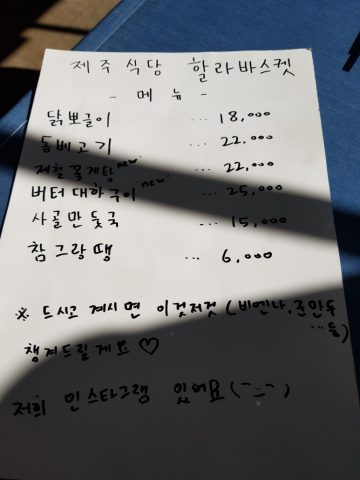 제주식당 할라바스켓
- 메뉴 -
닭볶글이 ... 18,000
돔베고기 ... 22.000
제철꽃게탕 new ... 22,000
버터대하구이 new ... 25,000
사골만둣국 ... 15,000
참그랑땡 ... 6,000
※ 드시고 계시면 이것저것 (비엔나, 군만두
... 등)
챙겨드릴게요 ♡
저희 인스타그램 있어요 (~:~)